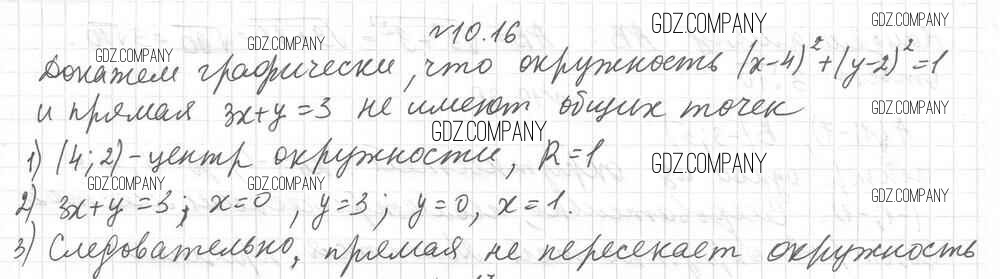 №10.16
GDZ.COMPANY GDZ.COMPANY
GDZ.COMPANY GDZ.COMPANY
Докажем графически, что окружность (x-4)²+(y-2)²=1
и прямая 3x+y=3 не имеют общих точек
GDZ.COMPANY GDZ.COMPANY
1) (4;2)-центр окружности, R=1
GDZ.COMPANY
GDZ.COMPANY GDZ.COMPANY GDZ.COMPANY
2) 3x+y=3; x=0, y=3; y=0, x=1.
3) Следовательно, прямая не пересекает окружность